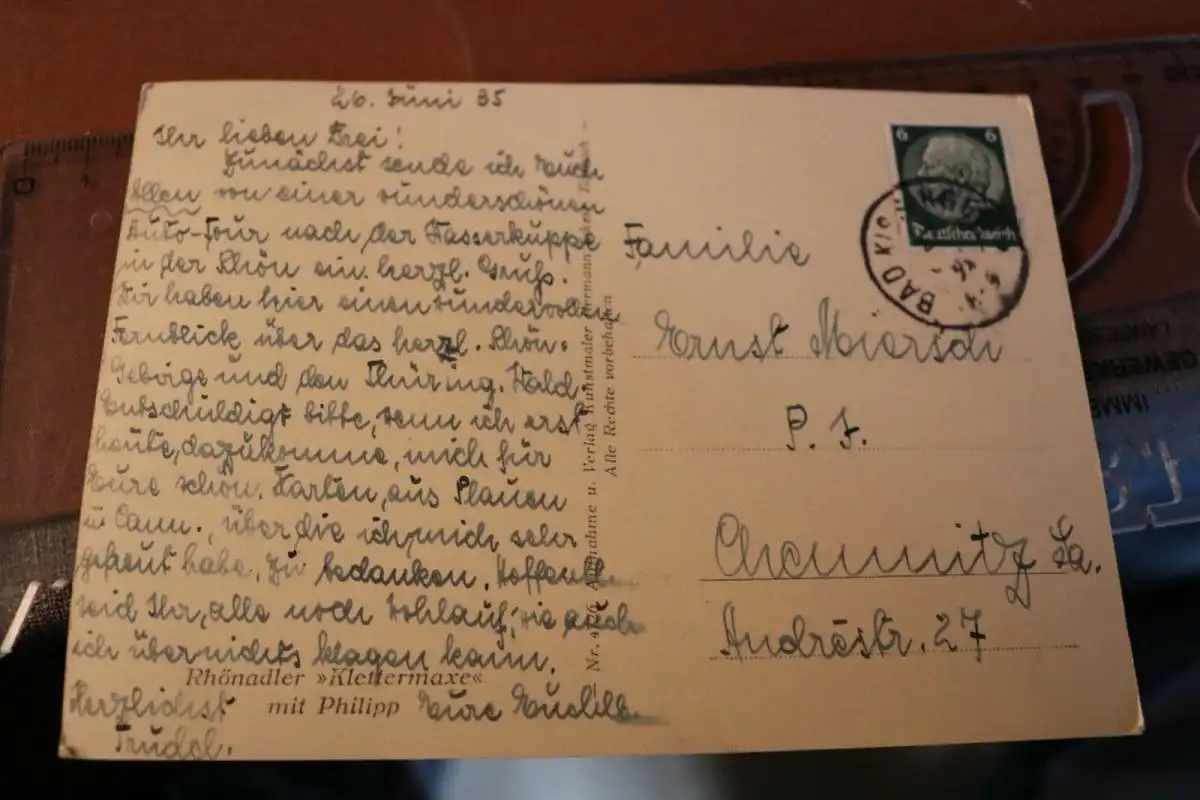 26. Juni 35
Ihr lieben Drei!
Zunächst sende ich Euch
Allen von einer wunderschönen
Auto-Tour nach der Wasserkuppe
in der Rhön ein. herzl. Gruß.
Wir haben hier einen wundervollen
Fernblick über das herrl. Rhön-
Gebirge und den Thüring. Wald.
Entschuldigt bitte, wenn ich erst
heute, dazukomme, mich für
Eure schön. Karten, aus Plauen
u. Cann., über die ich mich sehr
gefreut habe, zu bedanken. Hoffentl.
seid Ihr, alle noch wohlauf, wie auch
ich über nichts klagen kann.
Herzlichst Eure
Trudel.
Rhönadler »Klettermaxe«
mit Philipp
Aufnahme u. Verlag Kunstmaler
Alle Rechte vorbehalten
6 6
Deutsches Reich
BAD
Familie
Ernst Miersch
P. J.
Chemnitz Sa.
Andréstr. 27
GEWERK
IMME